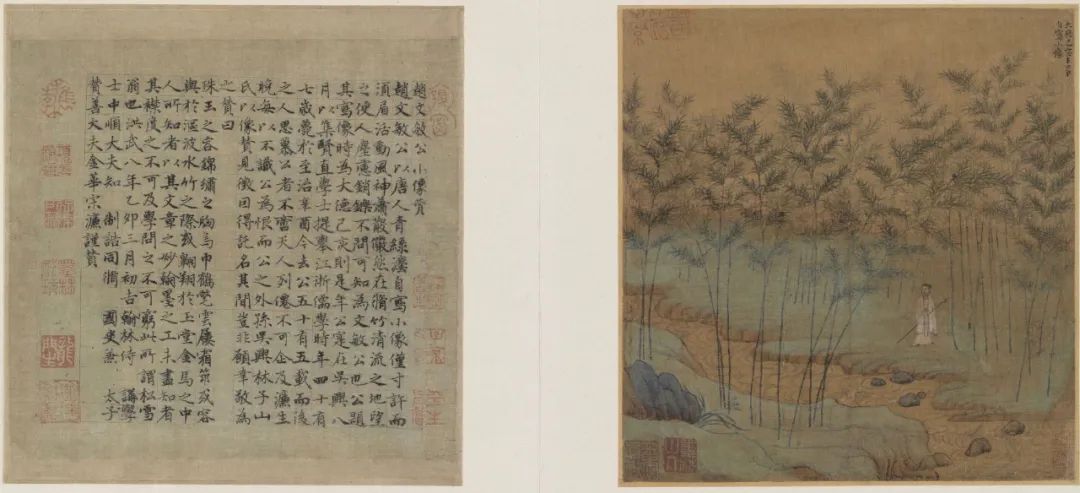 趙文敏公小像贊
趙文敏公以唐人青綠法自寫小像僅寸許而
須眉活動風神蕭散儼然在脩竹清流之地望
之使人塵慮銷鑠不問可知為文敏公也公題
其寫像時為大德己亥則是年公寔在吳興八
月以集賢直學士提舉江浙儒學時年四十有
七歲薨於至治辛酉今去公五十有五載而後
之人思慕公者不啻天人列僊不可企及濂生
晚每以不識公為恨而公之外孫吳興林子山
氏以像贊見徵因得託名其間豈非願幸敬為
之贊曰
珠玉之容錦繡之胸烏巾鶴氅雲屨霜筇或容
與於漚波水竹之際或翱翔於玉堂金馬之中
人所知者以其文章之妙翰墨之工未盡知者
其襟度之不可及學問之不可窮此所謂松雪
翁也洪武八年乙卯三月初吉翰林侍 講學
士中順大夫知 制誥同脩 國史兼 太子
贊善大夫金華宋濂謹贊
大德己亥子昂
自寫小像